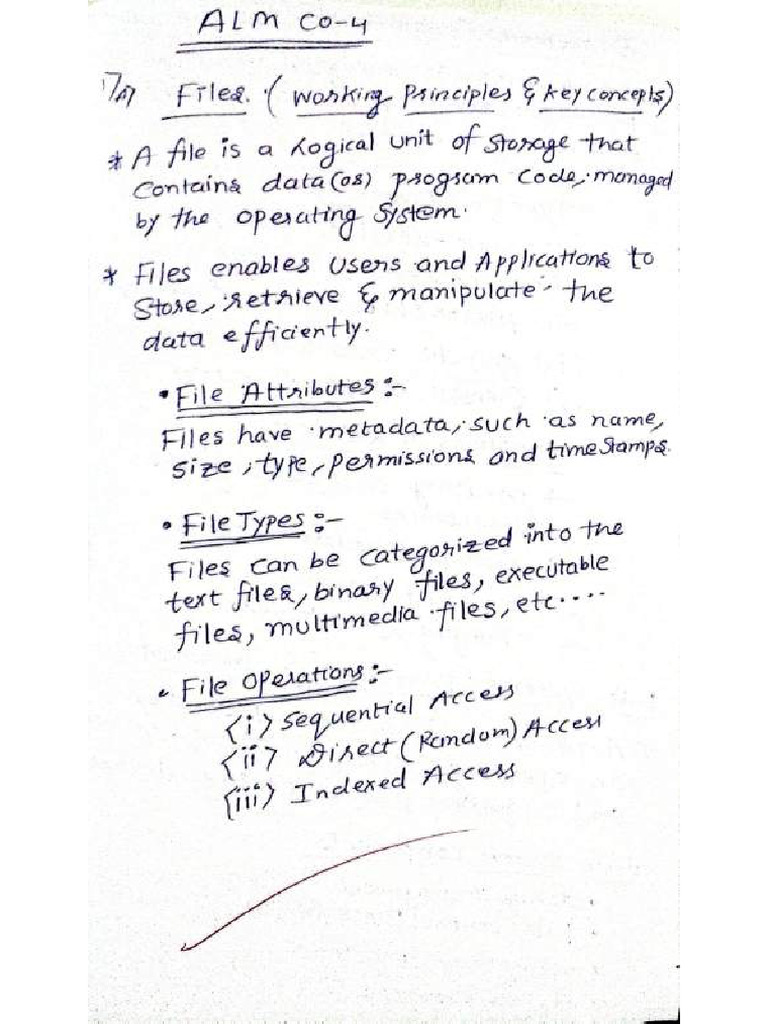 ALM CO-4
1) Files. (Working Principles & key concepts)
* A file is a Logical unit of storage that
contains data (or) program code, managed
by the operating system.
* Files enables users and Applications to
store, retrieve & manipulate the
data efficiently.
• File Attributes :-
Files have metadata, such as name,
size, type, permissions and time stamps.
• File Types :-
Files can be categorized into the
text files, binary files, executable
files, multimedia files, etc....
• File Operations :-
(i) Sequential Access
(ii) Direct (Random) Access
(iii) Indexed Access